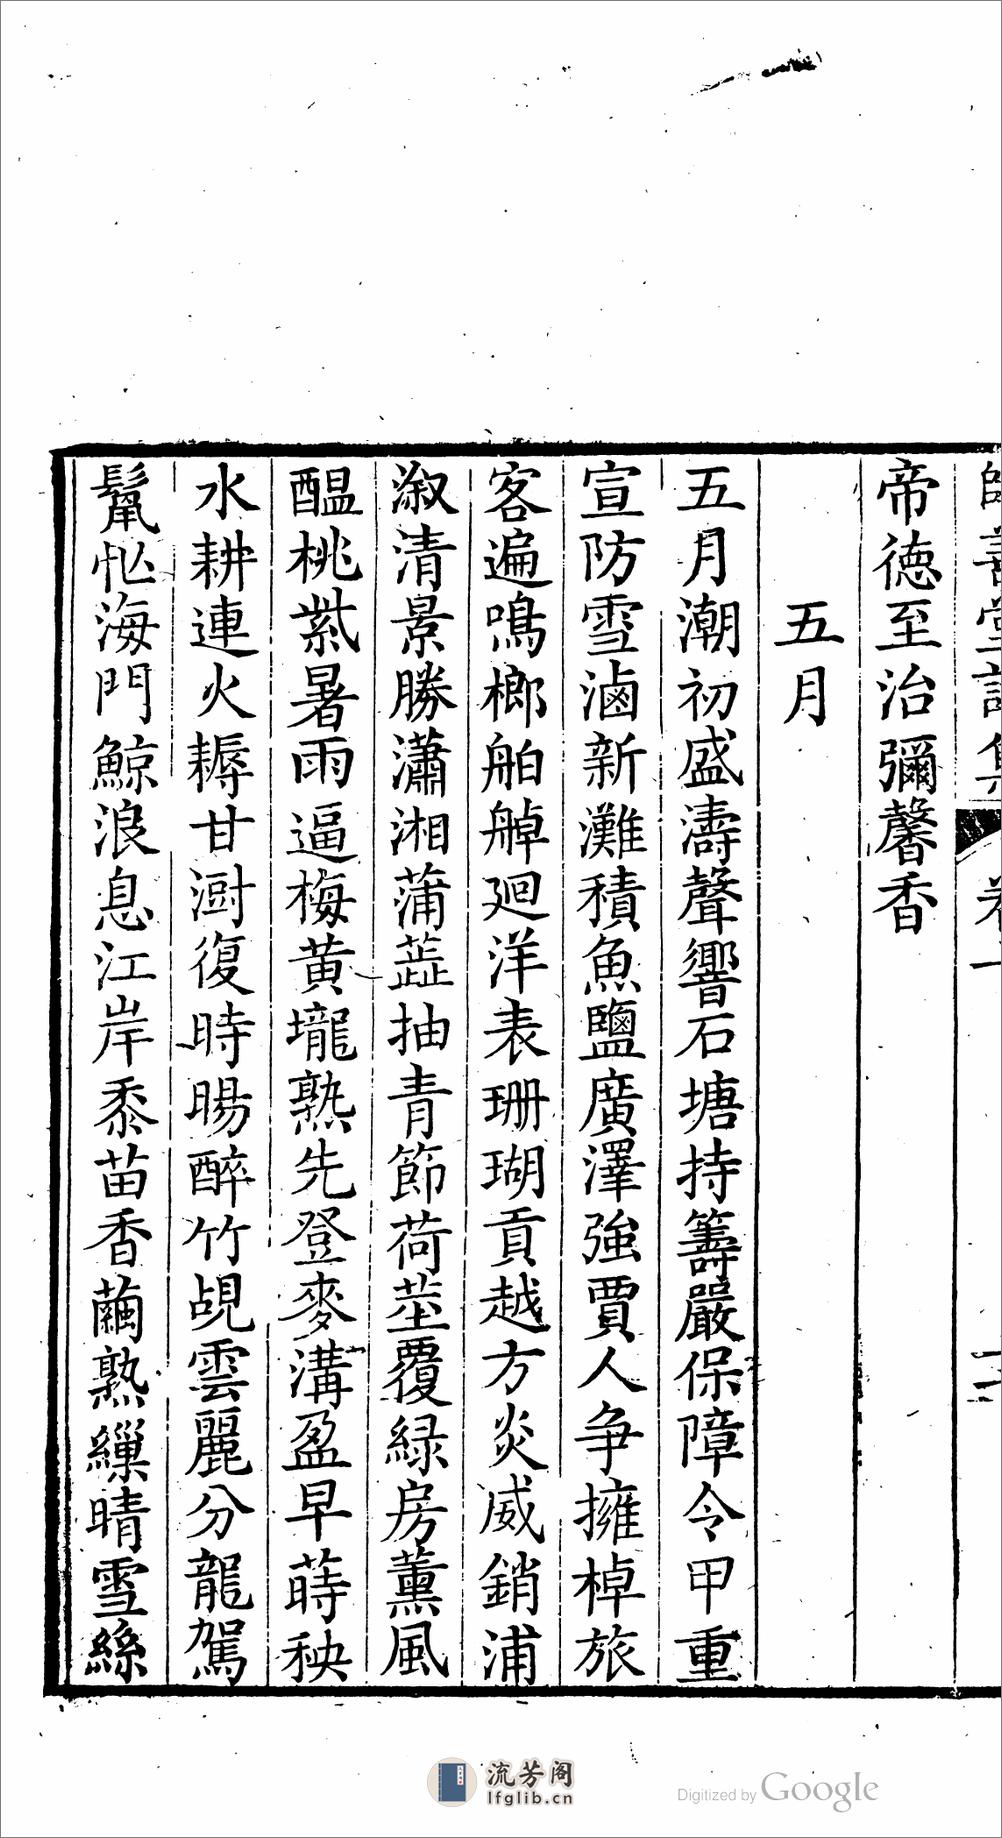 帝德至治彌馨香
五月
五月潮初盛濤聲響石塘持籌嚴保障令甲重
宣防雪滷新灘積魚鹽廣澤強賈人争擁棹旅
客遍鳴榔舶䑲廻洋表珊瑚貢越方炎威銷浦
溆清景勝瀟湘蒲蕋抽青節荷茎覆緑房薰風
醖桃紫暑雨逼梅黄壠熟先登麥溝盈早蒔秧
水耕連火耨甘澍復時暘醉竹覘雲麗分龍駕
鬣忙海門鯨浪息江岸黍苗香繭熟繅晴雪絲
流芳阁
lfglib.cn
Digitized by Google